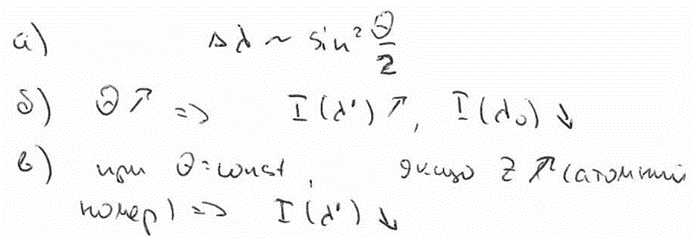 а) Δλ ~ sin² θ/2
б) θ↗ => I(λ')↗, I(λ₀)↓
в) при θ=const, якщо Z↗(атомний
номер) => I(λ')↓